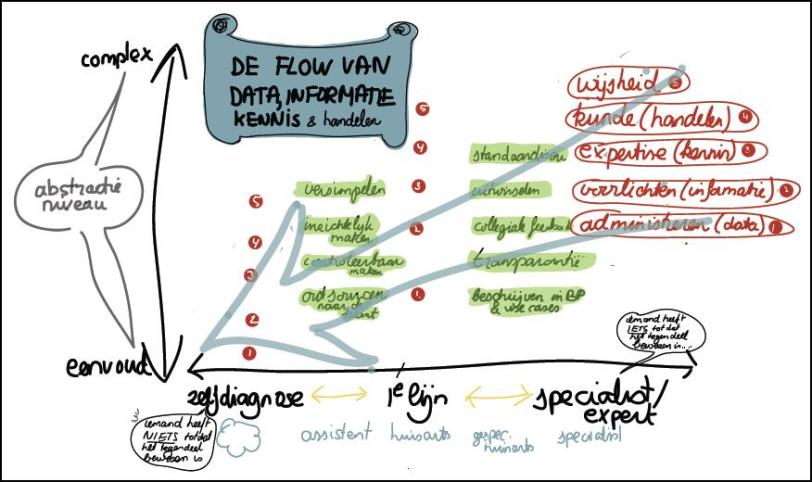 complex
DE FLOW VAN
DATA, INFORMATIE
KENNIS & handelen
abstractie
niveau
eenvoud
wijsheid 5
kunde (handelen) 4
expertise (kennis) 3
voorlichten (informatie) 2
administreren (data) 1
5
4
3
2
1
standaardiseren
uitwisselen
collegiale feedback
transparantie
beschrijven in BP
& use cases
versimpelen
inzichtelijk
maken
controleerbaar
maken
outsourcen
naar
5
4
3
2
1
iemand heeft
IETS totdat
het tegendeel
bewezen is...
zelfdiagnose
1e lijn
specialist/
expert
iemand heeft
NIETS totdat
het tegendeel
bewezen is
assistent
huisarts
gespec.
huisarts
specialist